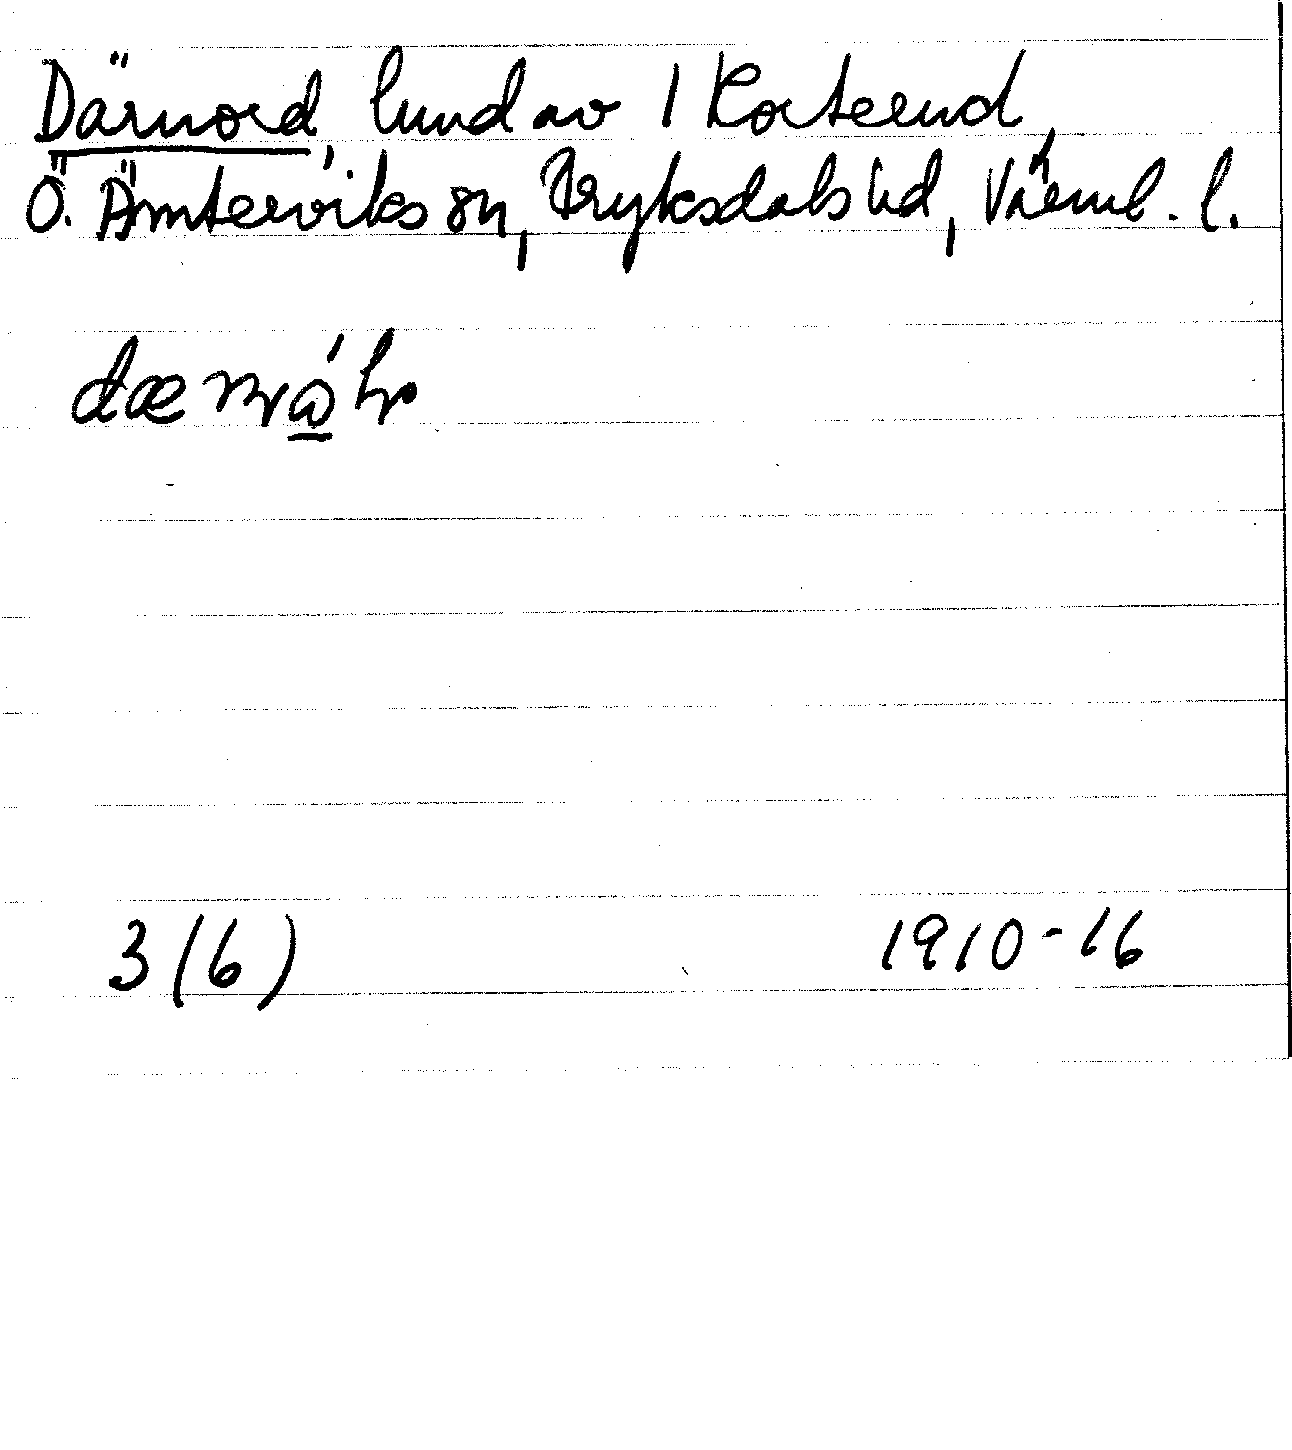 Därnord, lund av 1 Korterud,
Ö. Ämterviks sn, Fryksdals hd, Värml. l.
3 (6) 1910-16